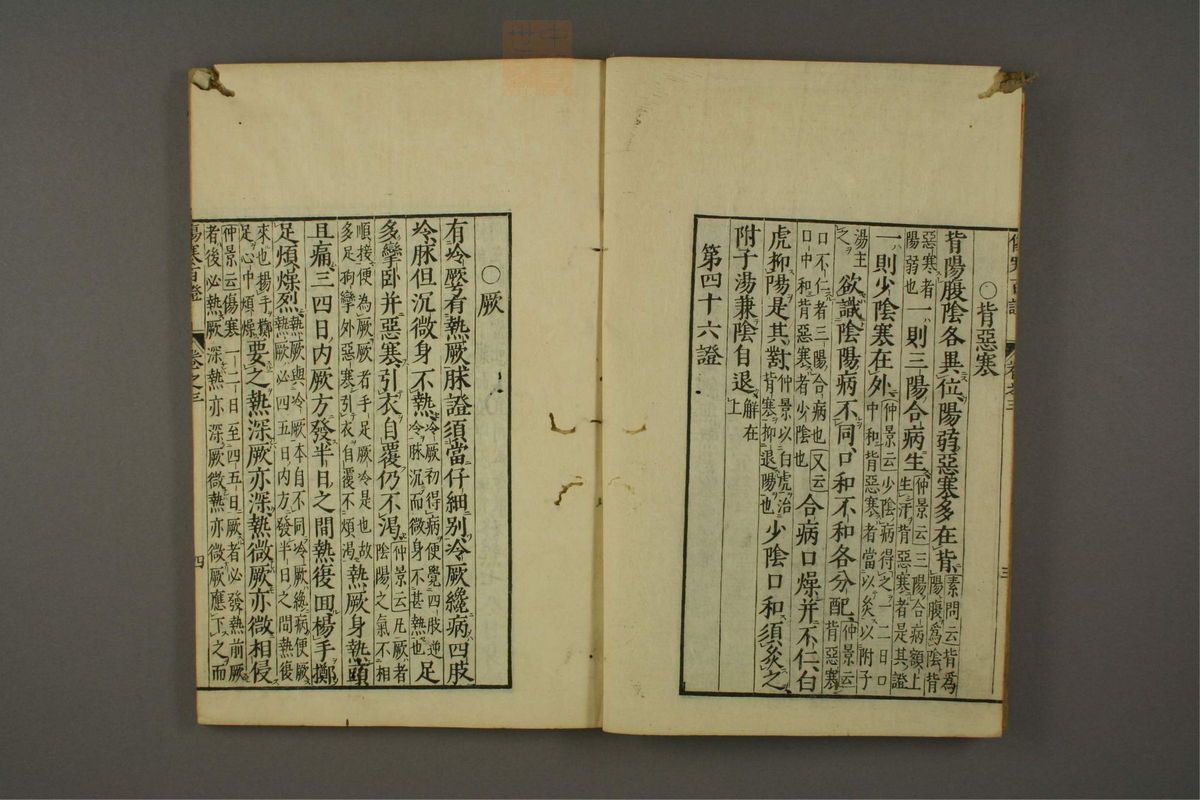 傷寒百證 卷之三 三
○背惡寒
背陽腹陰各異位陽弱惡寒多在背素問云背爲陽腹爲陰背
惡寒者陽弱也一則三陽合病生仲景云三陽合病額上生汗背惡寒者是其證
一則少陰寒在外仲景云少陰病得之一二日口中和背惡寒者當以灸以附子
湯主之欲識陰陽病不同口和不和各分配仲景云背惡寒
口不仁者三陽合病也又云口中和背惡寒者少陰也合病口燥并不仁白
虎抑陽是其對仲景以白虎治背寒抑退陽也少陰口和須灸之
附子湯兼陰自退解在上
第四十六證
○厥
有冷厥有熱厥脉證須當仔細別冷厥纔病四肢
冷脉但沉微身不熱冷厥初得病便覺四肢逆冷脉沉而微身不甚熱也足
多攣卧并惡寒引衣自覆仍不渴仲景云凡厥者陰陽之氣不相
順接便為厥厥者手足厥冷是也故多足拘攣外惡寒引衣自覆不煩渴熱厥身熱頭
且痛三四日内厥方發半日之間熱復回揚手擲
足煩燥烈熱厥與冷厥本自不同冷厥纔病便厥熱厥必四五日内方發半日之間熱復
來也揚手擲足心中煩燥要之熱深厥亦深熱微厥亦微相侵
仲景云傷寒一二日至四五日厥者必發熱前厥者後必熱厥深熱亦深厥微熱亦微厥應下之而
傷寒百證 卷之三 四